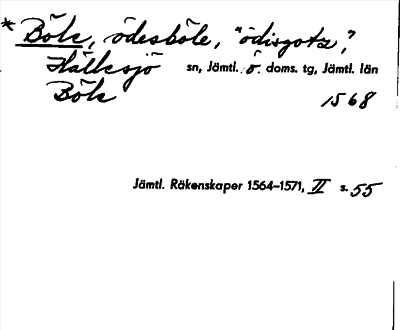 * Böle, ödesböle, "ödisgotz",
Hällesjö sn, Jämtl. ö. doms. tg, Jämtl. län
Böle 1568
Jämtl. Räkenskaper 1564–1571, II s. 55